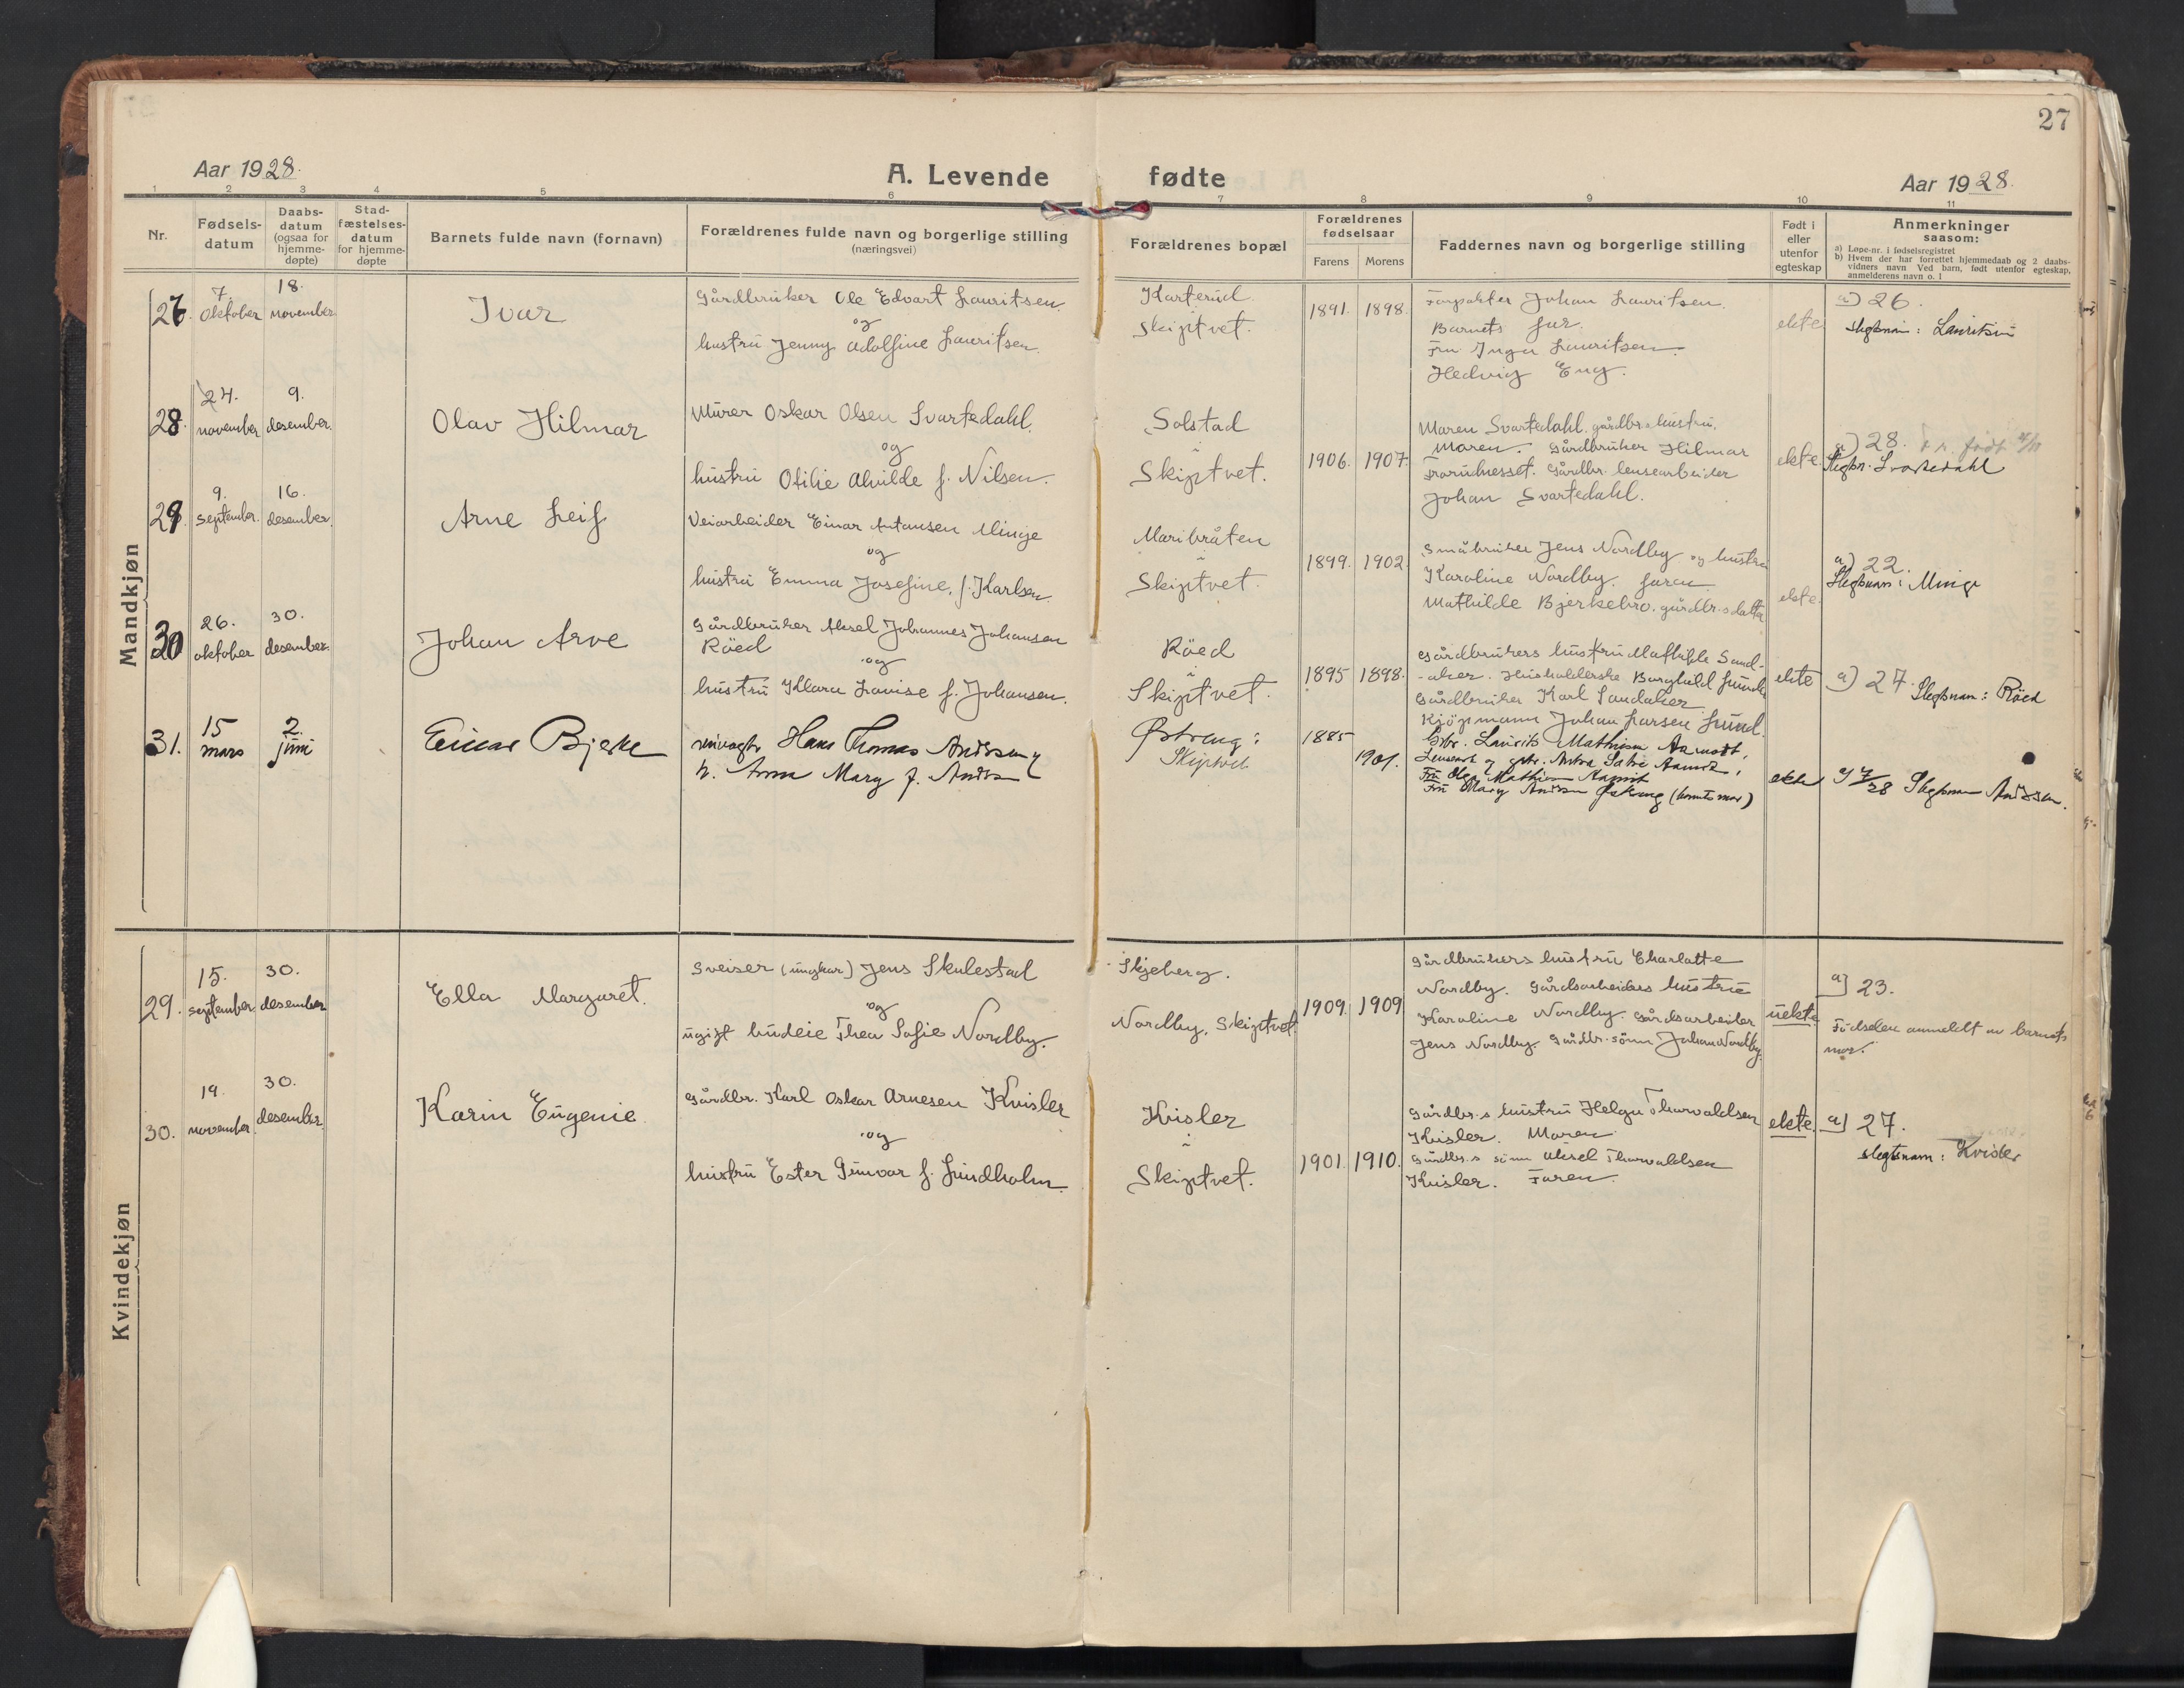 27
Aar 1928.
A. Levende fødte
Aar 1928.
1 2 3 4 5 6 7 8 9 10 11
Nr.
Fødsels-
datum
Daabs-
datum
(ogsaa for
hjemme-
døpte)
Stad-
fæstelses-
datum
for hjemme-
døpte
Barnets fulde navn (fornavn)
Forældrenes fulde navn og borgerlige stilling
(næringsvei)
Forældrenes bopæl
Forældrenes
fødselsaar
Farens Morens
Faddernes navn og borgerlige stilling
Født i
eller
utenfor
egteskap
Anmerkninger
saasom:
a) Løpe-nr. i fødselsregistret
b) Hvem der har forrettet hjemmedaab og 2 daabs-
vidners navn Ved barn, født utenfor egteskap,
anmelderens navn o. l
Mandkjøn
27.
7. oktober
18. november
Ivar
Gårdbruker Ole Edvart Lauritsen
og
hustru Jenny Adolfine Lauritsen.
Karterud
Skiptvet.
1891. 1898.
Forpakter Johan Lauritsen.
Barnets far.
Fru Inga Lauritsen.
Hedvig Eng.
ekte
a) 26.
slegtsnavn: Lauritsen
28.
24. november
9. desember.
Olav Hilmar
Murer Oskar Olsen Svartedahl.
og
hustru Otilie Alvilde f. Nilsen.
Solstad
i
Skiptvet.
1906. 1907.
Maren Svartedahl. gårdbr.s hustru.
Moren. Gårdbruker Hilmar
Gårdbr. lensearbeider
Johan Svartedahl.
ekte.
a) 28. født
Slegtsn. Svartedahl
29.
9. september.
16. desember.
Arne Leif
Veiarbeider Einar Antonsen Minge
og
hustru Emma Josefine, f. Karlsen.
Maribråten
i
Skiptvet.
1899. 1902.
Småbruker Jens Nordby og hustru
Karoline Nordby. faren
Mathilde Bjerkebro. gårdbr.s datter
ekte.
a) 22.
Slegtsnavn: Minge
30
26. oktober
30. desember.
Johan Arve
Gårdbruker Aksel Johannes Johansen
Röed
og
hustru Klara Lovise f. Johansen.
Röed
i
Skiptvet.
1895 1898.
Gårdbrukers hustru Mathilde Sand-
-aker. Husholderske Borghild Lunde
Gårdbruker Karl Sandaker
Kjöpmann Johan Larsen Lund.
ekte
a) 27. Slegtsnavn: Röed
31.
15 mars
2. juni
Einar Bjerke
Hans Thomas Andersen
h. Anna Mary f.
Østeng i
Skiptvet
1885
1901.
Gbr. Laurits Mathisen Aamodt,
Fru Olga Mathisen Aamodt
Fru Mary Andersen Østeng (barnets mor)
ekte
Slegtsnavn Andersen.
Kvindekjøn
29.
15. september
30. desember
Ella Margaret.
Sveiser (ungkar) Jens Skulestad
og
ugift budeie Thea Sofie Nordby.
Skjeberg.
Nordby, Skiptvet.
1909. 1909
Gårdbrukers hustru Charlotte
Nordby. Gårdsarbeiders hustru
Karoline Nordby. Gårdsarbeider
Jens Nordby. Gårdbr. sönn Johan Nordby.
uekte
a) 23.
Födselen anmeldt av barnets
mor.
30.
19. november
30. desember
Karin Eugenie
Gårdbr. Karl Oskar Arnesen Kvisler
og
hustru Ester Gunvor f. Lundholm.
Kvisler
i
Skiptvet.
1901. 1910.
Gårdbr.s hustru Helga Thorvaldsen
Kvisler. Moren
Gårdbr.s sönn Aksel Thorvaldsen
Kvisler. Faren.
ekte.
a) 27.
slegtsnavn: Kvisler